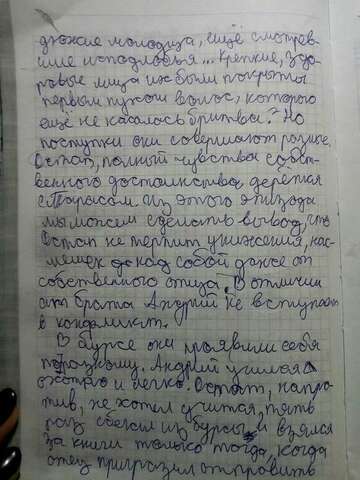 дюжие молодца, ещё смотрев-
шие исподлобья... Крепкие, здо-
ровые лица их были покрыты
первым пухом волос, которого
ещё не касалась бритва." Но
поступки они совершают разные.
Остап, полный чувства собст-
венного достоинства, дерётся
с Тарасом. Из этого эпизода
мы можем сделать вывод, что
Остап не терпит унижения, нас-
мешек над собой даже от
собственного отца. В отличии
от брата Андрий не вступает
в конфликт.
В бурсе они проявили себя
по-разному. Андрий учился
охотно и легко. Остап, напро-
тив, не хотел учится, пять
раз сбегал из бурсы и взялся
за книги только тогда, когда
отец пригрозил отправить